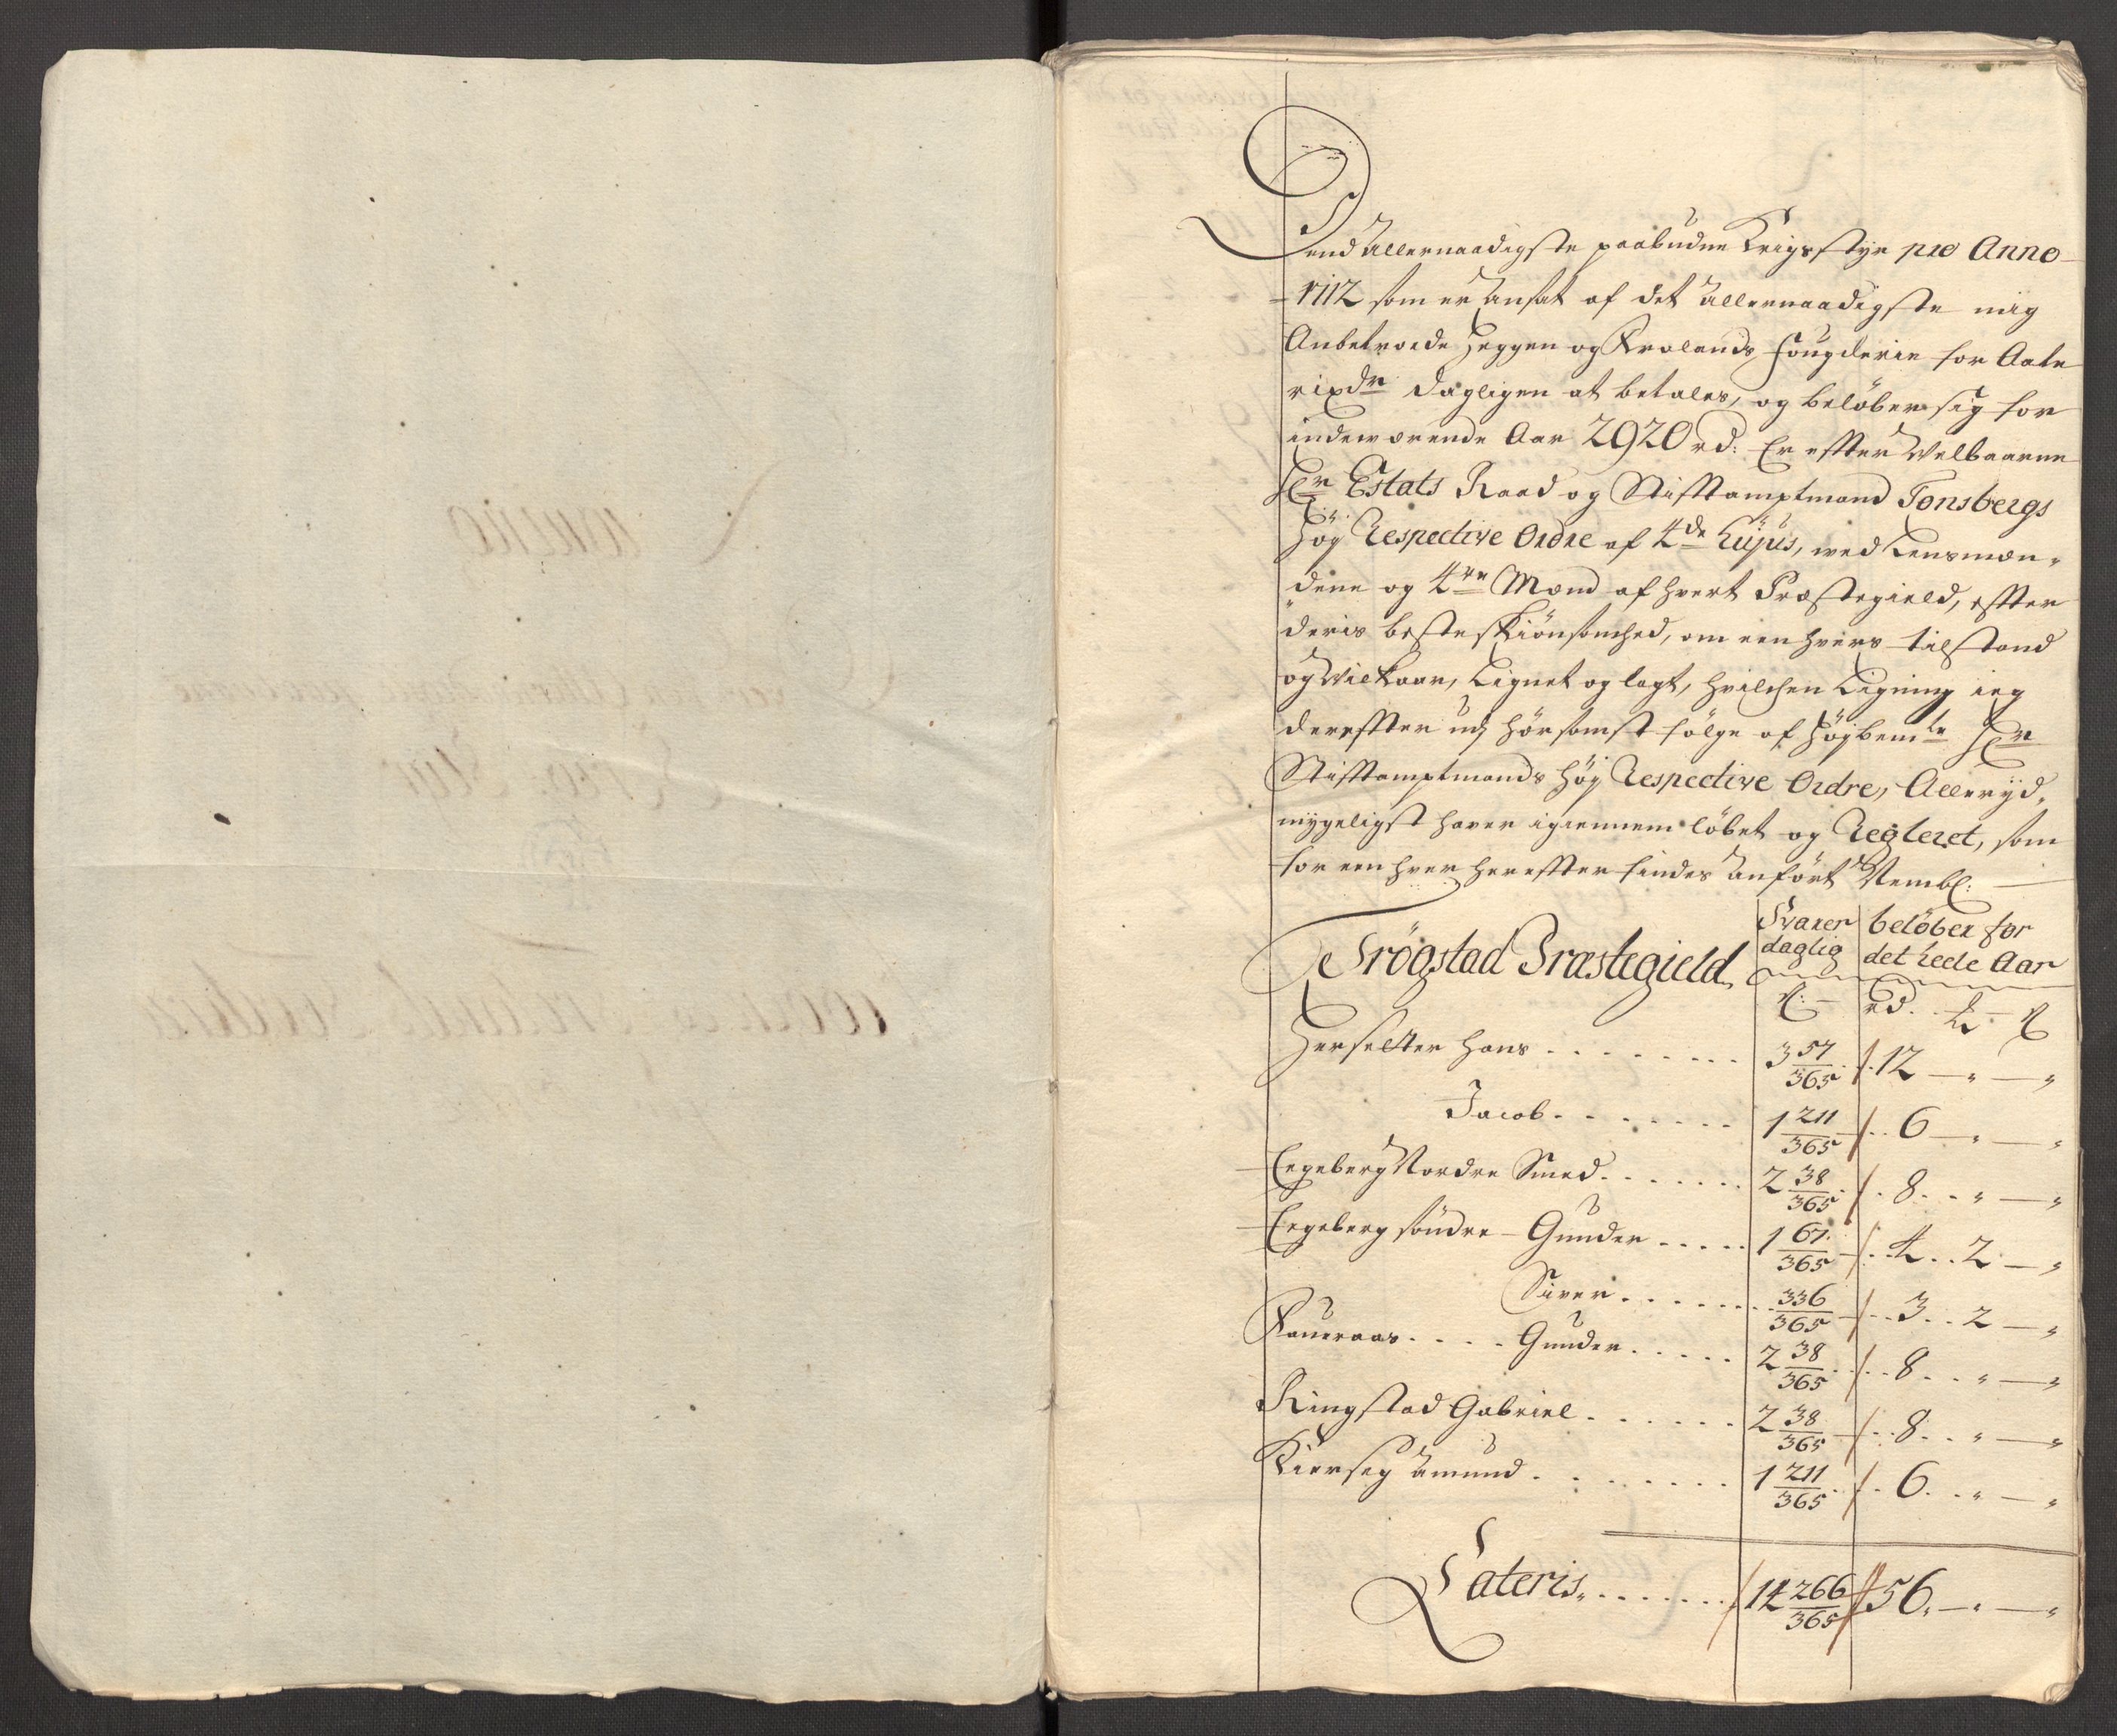 Dend allernaadigste paabudne Krigsstyr pro Anno
1712 som er ansat af det allernaadigste mig
Anbetroede Heggen og Frølands fougderie for Aate
rixdr dagligen at betales, og beløber sig for
indeværende Aar 2920 rd: Er effter Welbaarne
Hr Estats Raad og Stifftamptmand Tonsbergs
Høy Respective Ordre af 4de Hujus, med Lensmæn-
dene og 4re Mænd af hvert Præstegield, effter
deris beste skiønsomhed, om een hvers tilstand
og Vilkaar, Lignet og lagt, hvilchen Ligning ieg
dereffter udj hørsomst følge af Høybemte Hr
Stifftamptmands høy Respective Ordre, Alleryd-
mygeligst haver igiennemløbet og Regleret, som
for een hver hereffter findes anført Nembl:
Trøgstad Præstegield
Svarer daglig
beløber for det heele Aar
ß: rd. ß
Herseltter Hans 3 57/365 12 — " — "
Jacob 1 211/365 6 — " — "
Eegeberg Nordre Smed 2 38/365 8 " — "
Eegeberg søndre Gunder 1 67/365 4 2 — "
Siver 336/365 3 2 — "
Faueraas Gunder 2 38/365 8 " — "
Ringstad Gabriel 2 38/365 8 " — "
Kierseg Amund 1 211/365 6 " — "
Lateris 14 266/365 56 — " — "